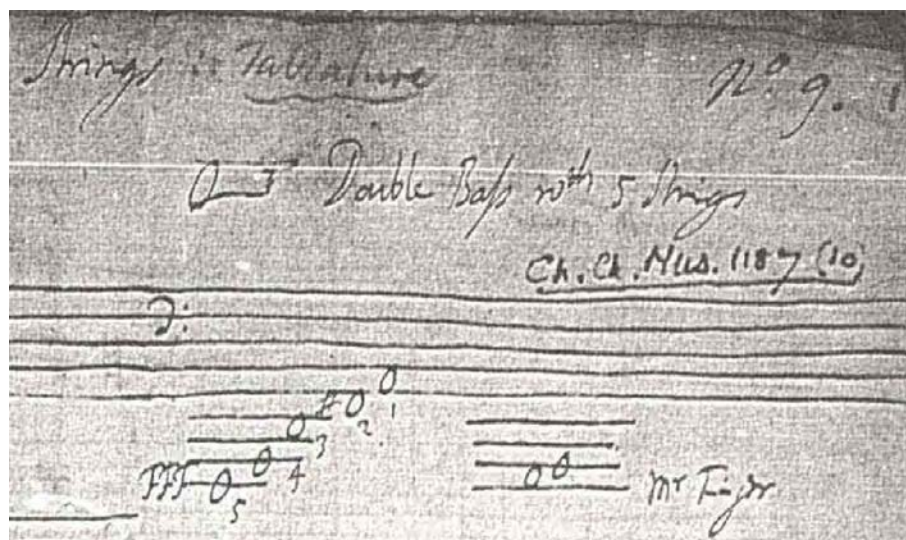 Strings in Tablature No. 9. 1
Double Bass wth 5 Strings
Ch. Ch. Mus. 1187 (10)
1
2
3
4
FFF
5
Mr Finger